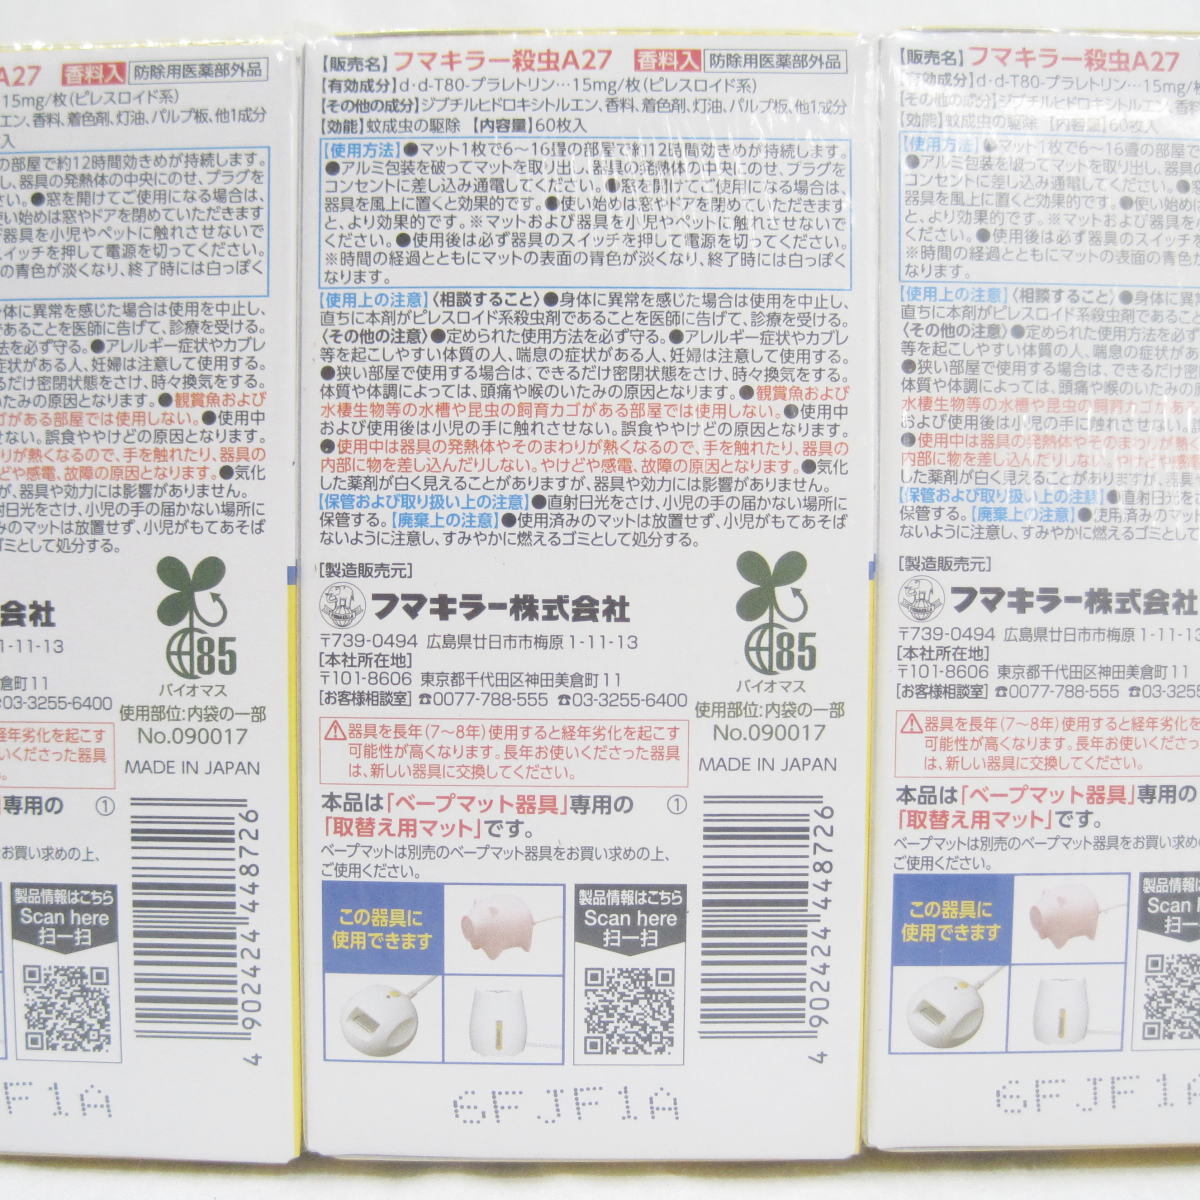 【販売名】フマキラー殺虫A27 香料入 防除用医薬部外品
【有効成分】d・d-T80-プラレトリン…15mg/枚(ピレスロイド系)
【その他の成分】ジブチルヒドロキシトルエン、香料、着色剤、灯油、パルプ板、他1成分
【効能】蚊成虫の駆除 【内容量】60枚入
【使用方法】●マット1枚で6～16畳の部屋で約12時間効きめが持続します。
●アルミ包装を破ってマットを取り出し、器具の発熱体の中央にのせ、プラグを
コンセントに差し込み通電してください。●窓を開けてご使用になる場合は、
器具を風上に置くと効果的です。●使い始めは窓やドアを閉めていただきます
と、より効果的です。※マットおよび器具を小児やペットに触れさせないで
ください。●使用後は必ず器具のスイッチを押して電源を切ってください。
※時間の経過とともにマットの表面の青色が淡くなり、終了時には白っぽく
なります。
【使用上の注意】〈相談すること〉●身体に異常を感じた場合は使用を中止し、
直ちに本剤がピレスロイド系殺虫剤であることを医師に告げて、診療を受ける。
〈その他の注意〉●定められた使用方法を必ず守る。●アレルギー症状やカブレ
等を起こしやすい体質の人、喘息の症状がある人、妊婦は注意して使用する。
●狭い部屋で使用する場合は、できるだけ密閉状態をさけ、時々換気をする。
体質や体調によっては、頭痛や喉のいたみの原因となります。●観賞魚および
水棲生物等の水槽や昆虫の飼育カゴがある部屋では使用しない。●使用中
および使用後は小児の手に触れさせない。誤食ややけどの原因となります。
●使用中は器具の発熱体やそのまわりが熱くなるので、手を触れたり、器具の
内部に物を差し込んだりしない。やけどや感電、故障の原因となります。●気化
した薬剤が白く見えることがありますが、器具や効力には影響がありません。
【保管および取り扱い上の注意】●直射日光をさけ、小児の手の届かない場所に
保管する。【廃棄上の注意】●使用済みのマットは放置せず、小児がもてあそば
ないように注意し、すみやかに燃えるゴミとして処分する。
【製造販売元】
フマキラー株式会社
〒739-0494 広島県廿日市市梅原1-11-13
【本社所在地】
〒101-8606 東京都千代田区神田美倉町11
【お客様相談室】☎0077-788-555 ☎03-3255-6400
85
バイオマス
使用部位:内袋の一部
No.090017
MADE IN JAPAN
⚠器具を長年(7～8年)使用すると経年劣化を起こす
可能性が高くなります。長年お使いくださった器具
は、新しい器具に交換してください。
本品は「ベープマット器具」専用の ①
「取替え用マット」です。
ベープマットは別売のベープマット器具をお買い求めの上、
ご使用ください。
この器具に
使用できます
製品情報はこちら
Scan here
扫一扫
4 902424 448726
6FJF1A
A27 香料入 防除用医薬部外品
15mg/枚(ピレスロイド系)
エン、香料、着色剤、灯油、パルプ板、他1成分
入
の部屋で約12時間効きめが持続します。
し、器具の発熱体の中央にのせ、プラグを
さい。●窓を開けてご使用になる場合は、
使い始めは窓やドアを閉めていただきます
び器具を小児やペットに触れさせないで
スイッチを押して電源を切ってください。
の青色が淡くなり、終了時には白っぽく
体に異常を感じた場合は使用を中止し、
であることを医師に告げて、診療を受ける。
法を必ず守る。●アレルギー症状やカブレ
症状がある人、妊婦は注意して使用する。
るだけ密閉状態をさけ、時々換気をする。
いたみの原因となります。●観賞魚および
ゴがある部屋では使用しない。●使用中
せない。誤食ややけどの原因となります。
りが熱くなるので、手を触れたり、器具の
どや感電、故障の原因となります。●気化
が、器具や効力には影響がありません。
射日光をさけ、小児の手の届かない場所に
みのマットは放置せず、小児がもてあそば
ゴミとして処分する。
会社
1-11-13
美倉町11
☎03-3255-6400
85
バイオマス
使用部位:内袋の一部
No.090017
MADE IN JAPAN
経年劣化を起こす
いくださった器具
専用の ①
お買い求めの上、
製品情報はこちら
Scan here
扫一扫
4 902424 448726
F1A
【販売名】フマキラー殺虫A27
【有効成分】d・d-T80-プラレトリン…15mg/枚
【その他の成分】ジブチルヒドロキシトルエン、香料
【効能】蚊成虫の駆除 【内容量】60枚入
【使用方法】●マット1枚で6～16畳の部屋で
●アルミ包装を破ってマットを取り出し、器具の
コンセントに差し込み通電してください。●
器具を風上に置くと効果的です。●使い始め
と、より効果的です。※マットおよび器具を
ください。●使用後は必ず器具のスイッチを
※時間の経過とともにマットの表面の青色が
なります。
【使用上の注意】〈相談すること〉●身体に異
直ちに本剤がピレスロイド系殺虫剤であること
〈その他の注意〉●定められた使用方法を必ず
等を起こしやすい体質の人、喘息の症状があ
●狭い部屋で使用する場合は、できるだけ密
体質や体調によっては、頭痛や喉のいたみの
水棲生物等の水槽や昆虫の飼育カゴがあ
および使用後は小児の手に触れさせない。
●使用中は器具の発熱体やそのまわりが熱
内部に物を差し込んだりしない。やけどや感電
した薬剤が白く見えることがありますが、器具
【保管および取り扱い上の注意】●直射日光
保管する。【廃棄上の注意】●使用済みのマッ
ないように注意し、すみやかに燃えるゴミとして
【製造販売元】
フマキラー株式会社
〒739-0494 広島県廿日市市梅原1-11-13
【本社所在地】
〒101-8606 東京都千代田区神田美倉町11
【お客様相談室】☎0077-788-555 ☎03-325
⚠器具を長年(7～8年)使用すると経年劣化
可能性が高くなります。長年お使いくださっ
は、新しい器具に交換してください。
本品は「ベープマット器具」専用の
「取替え用マット」です。
ベープマットは別売のベープマット器具をお買い求め
ご使用ください。
この器具に
使用できます
製品情報は
Scan h
扫一
6FJF1A